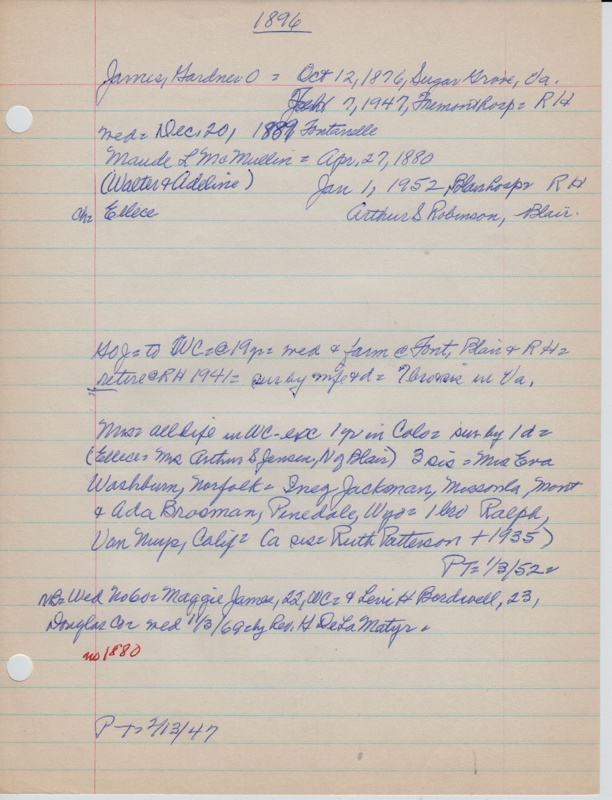 1896
James, Gardner O = Oct 12, 1876, Sugar Grove, Va.
Feb 7, 1947, Fremonthosp = RH
med = Dec. 20, 1889 Fontanelle
Maude L McMullin = Apr. 27, 1880
(Walter & Addine) Jan 1, 1952, Blairhosp = RH
Ch = Ellece Arthur S Robinson, Blair.
GOJ = to WC = @ 19yr = med & farm @ Font, Blair & RH =
retire @ RH 1941 = sur by wife & d = 7 bro sis in Va.
Mrs = all life in WC - exc 1 yr in Colo = sur by 1 d =
(Ellece = Mrs Arthur S Jensen, N of Blair) 3 sis = Mrs Eva
Washburn, Norfolk = Inez Jackman, Missoula, Mont
& Ada Brosman, Pinedale, Wyo = 1 bro Ralph,
Van Nuys, Calif = (a sis = Ruth Patterson + 1935)
PT = 1/3/52 =
NB = Wed No 60 = Maggie James, 22, WC = & Levi H Bordwell, 23,
Douglas Co = med 11/3/69 by Rev. H DeLaMatyr =
no 1880
PT = 2/13/47